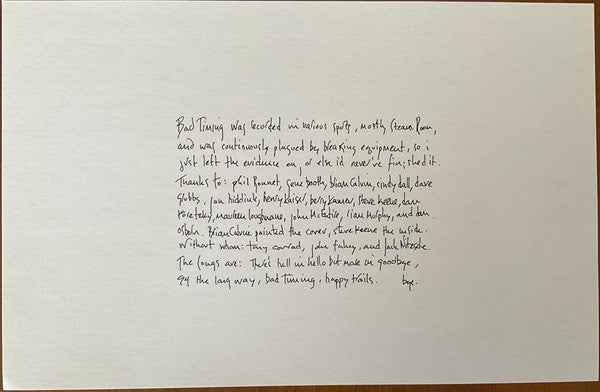 Bad Timing was recorded in various spots, mostly Steam Room,
and was continuously plagued by breaking equipment, so i
just left the evidence on, or else i'd never've finished it.
Thanks to: phil Bonnet, gene booth, brian Calvin, cindy dall, dave
grubbs, jon hiddink, henry kaiser, berry kamer, steve keene, dan
koretzky, maureen loughnane, john McEntire, rian Murphy, and dan
osborn. Brian Calvin painted the cover, steve keene the inside.
Without whom: tony conrad, john fahey, and Jack Nitzsche.
The songs are: There's hell in hello but more in goodbye,
94 the long way, bad timing, happy trails. bye.